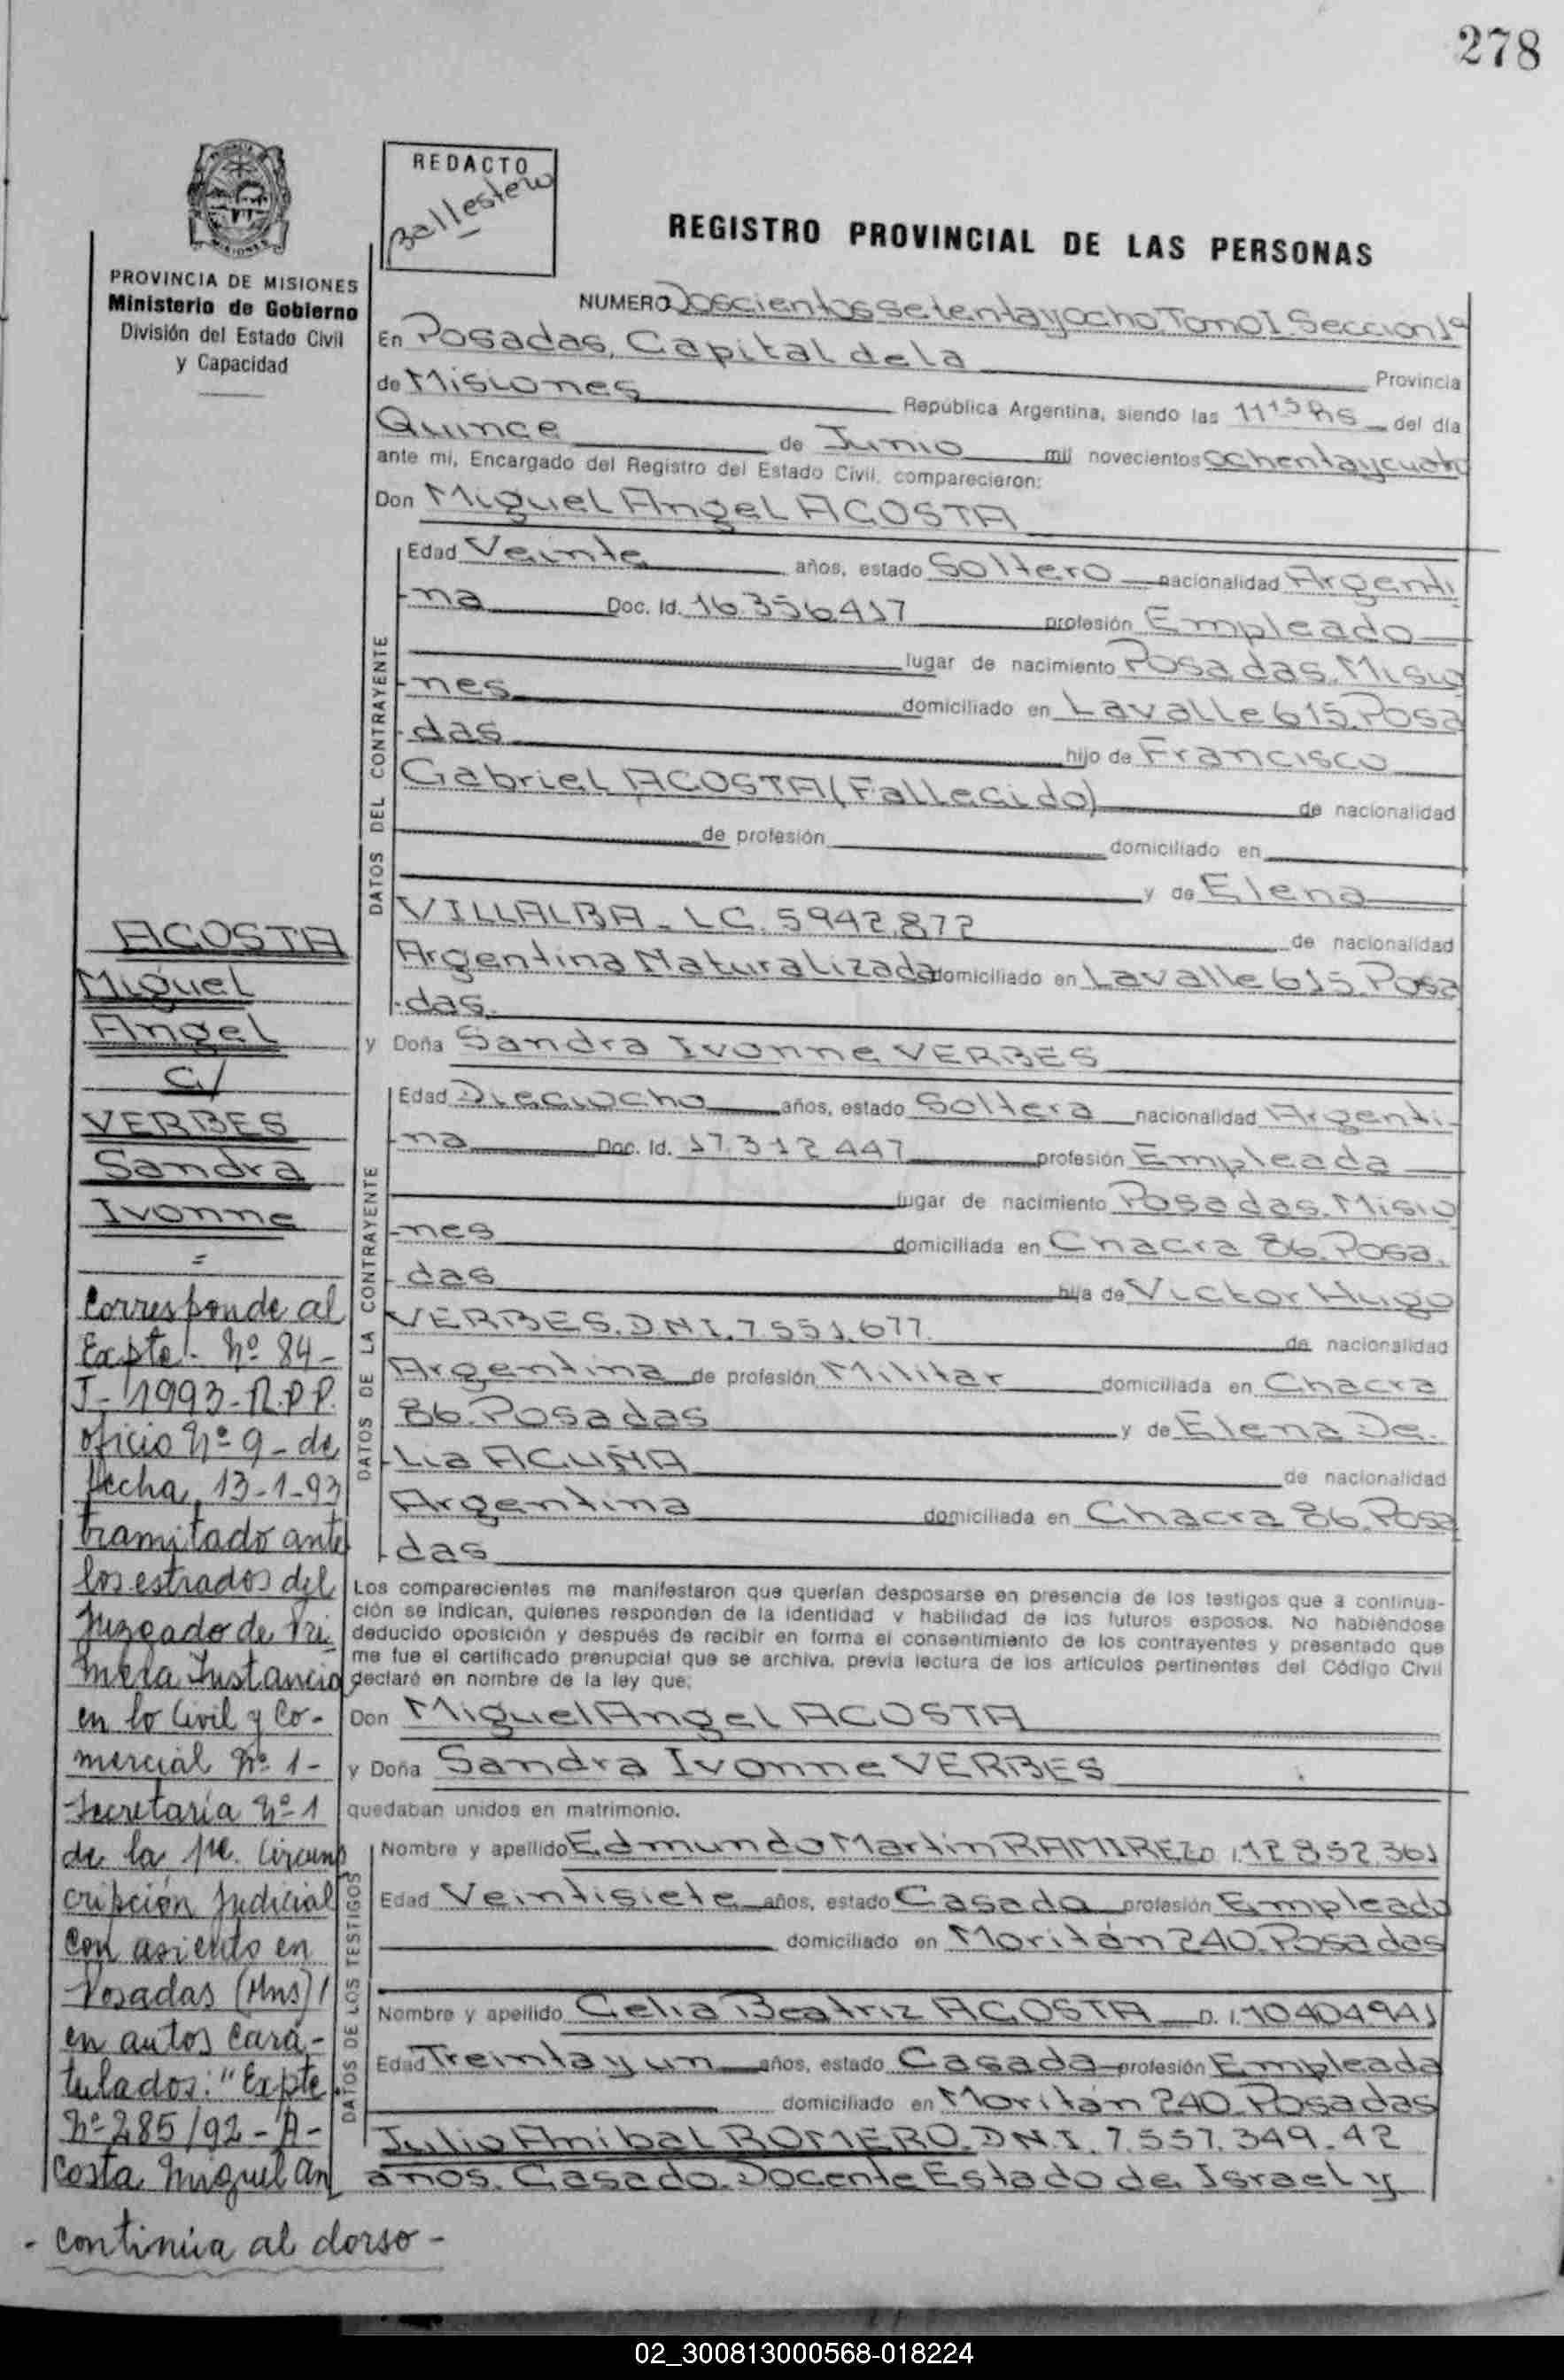 278
REDACTO
Ballestero
REGISTRO PROVINCIAL DE LAS PERSONAS
PROVINCIA DE MISIONES
Ministerio de Gobierno
División del Estado Civil
y Capacidad
NUMERO Doscientos setenta y ocho Tomo I Seccion 1ª
En Posadas, Capital de la Provincia
de Misiones República Argentina, siendo las 11 15 hs del día
Quince de Junio mil novecientos ochenta y cuatro
ante mi, Encargado del Registro del Estado Civil, comparecieron:
Don Miguel Angel ACOSTA
DATOS DEL CONTRAYENTE
Edad Veinte años, estado Soltero nacionalidad Argenti
-na Doc. Id. 16.356.417 profesión Empleado
lugar de nacimiento Posadas. Misio
-nes domiciliado en Lavalle 615. Posa
-das hijo de Francisco
Gabriel ACOSTA (Fallecido) de nacionalidad
de profesión domiciliado en
y de Elena
VILLALBA - L.C. 5942.872 de nacionalidad
Argentina Naturalizada domiciliado en Lavalle 615. Posa
-das.
y Doña Sandra Ivonne VERBES
DATOS DE LA CONTRAYENTE
Edad Dieciocho años, estado Soltera nacionalidad Argenti-
-na Doc. Id. 17.312.447 profesión Empleada
lugar de nacimiento Posadas. Misio
-nes domiciliada en Chacra 86. Posa.
-das hija de Victor Hugo
VERBES. D.N.I. 7.551.677. de nacionalidad
Argentina de profesión Militar domiciliada en Chacra
86. Posadas y de Elena De.
-lia ACUÑA de nacionalidad
Argentina domiciliada en Chacra 86. Posa
-das
Los comparecientes me manifestaron que querían desposarse en presencia de los testigos que a continua-
ción se indican, quienes responden de la identidad y habilidad de los futuros esposos. No habiéndose
deducido oposición y después de recibir en forma el consentimiento de los contrayentes y presentado que
me fue el certificado prenupcial que se archiva, previa lectura de los artículos pertinentes del Código Civil
declaré en nombre de la ley que:
Don Miguel Angel ACOSTA
y Doña Sandra Ivonne VERBES
quedaban unidos en matrimonio.
DATOS DE LOS TESTIGOS
Nombre y apellido Edmundo Martin RAMIREZ D.I. 12.852.361
Edad Veintisiete años, estado Casado profesión Empleado
domiciliado en Moritán 240. Posadas
Nombre y apellido Celia Beatriz ACOSTA D.I. 10404941
Edad Treinta y un años, estado Casada profesión Empleada
domiciliado en Moritán 240. Posadas
Julio Anibal ROMERO. D.N.I. 7.557.349. 42
años. Casado. Docente Estado de Israel y
ACOSTA
Miguel
Angel
c/
VERBES
Sandra
Ivonne
=
Corresponde al
Expte. Nº 84-
J-1993-R.P.P.
oficio Nº 9- de
fecha, 13-1-93
tramitado ante
los estrados del
Juzgado de Pri
mera Instancia
en lo Civil y Co-
mercial Nº 1-
Secretaría Nº 1
de la 1ra. Circuns
cripción Judicial
con asiento en
Posadas (Mns)
en autos cara-
tulados: "Expte
Nº 285/92-A-
costa Miguel An
- continúa al dorso -
02_300813000568-018224